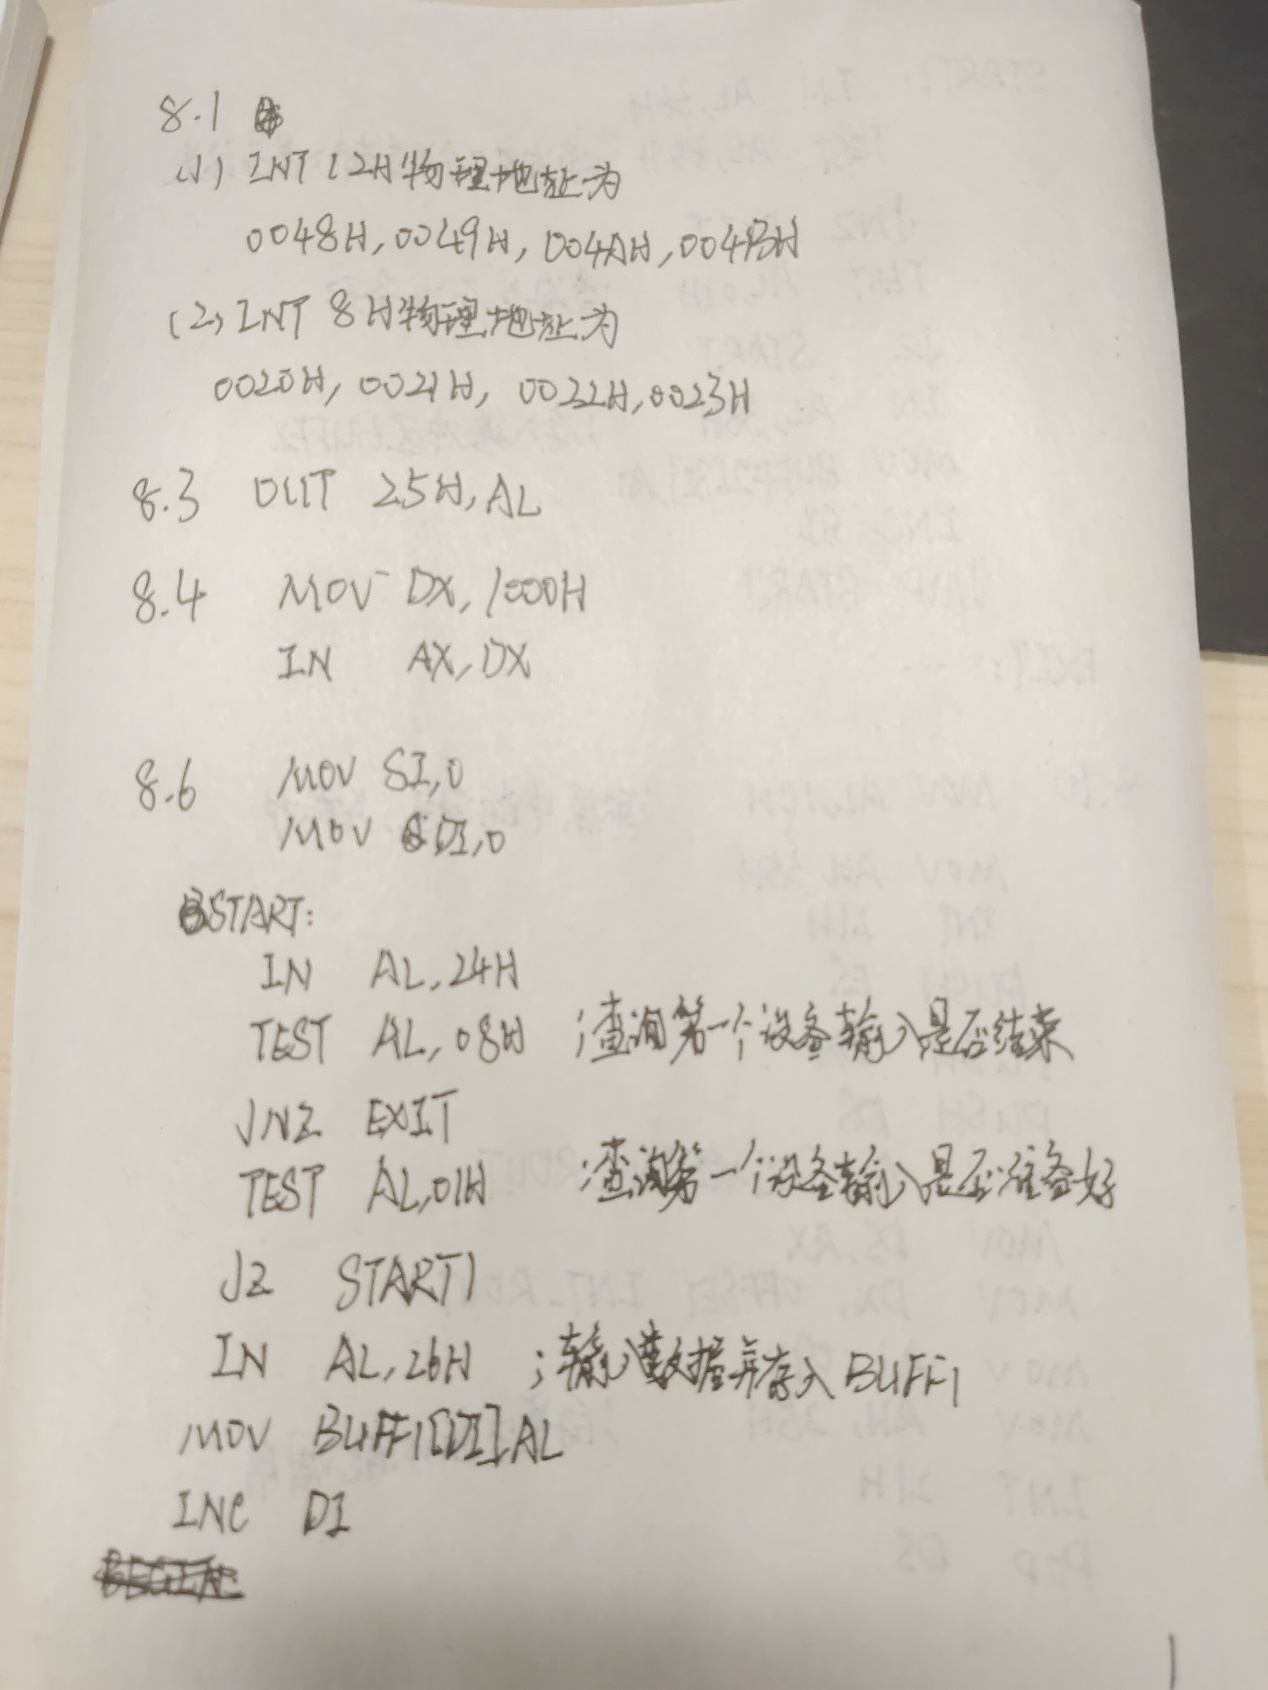 8.1
(1) INT 12H物理地址为
0048H, 0049H, 004AH, 004BH
(2) INT 8H物理地址为
0020H, 0021H, 0022H, 0023H
8.3 OUT 25H, AL
8.4 MOV DX, 1000H
IN AX, DX
8.6 MOV SI, 0
MOV DI, 0
START:
IN AL, 24H
TEST AL, 08H ;查询第一个设备输入是否结束
JNZ EXIT
TEST AL, 01H ;查询第一个设备输入是否准备好
JZ START1
IN AL, 26H ;输入数据并存入BUFF1
MOV BUFF1[DI], AL
INC DI